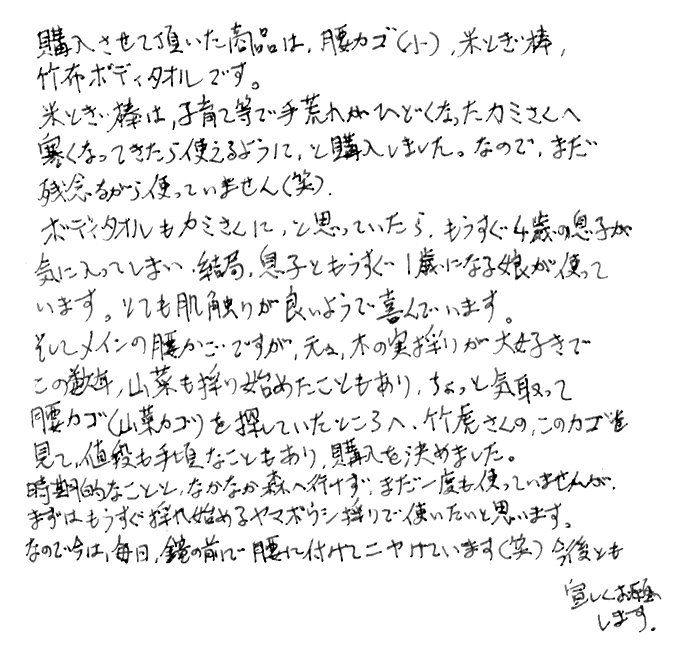 購入させて頂いた商品は、腰カゴ(小)、米とぎ棒、
竹布ボディタオルです。
米とぎ棒は、子育て等で手荒れがひどくなったカミさんへ
寒くなってきたら使えるように、と購入しました。なので、まだ
残念ながら使っていません(笑).
ボディタオルもカミさんに、と思っていたら、もうすぐ4歳の息子が
気に入ってしまい、結局、息子ともうすぐ1歳になる娘が使って
います。とても肌触りが良いようで喜んでいます。
そしてメインの腰かごですが、元々、木の実採りが大好きで
この数年、山菜も採り始めたこともあり、ちょっと気取って
腰カゴ(山菜カゴ)を探していたところへ、竹虎さんの、このカゴを
見て、値段も手頃なこともあり、購入を決めました。
時期的なことと、なかなか森へ行けず、まだ一度も使っていませんが、
まずはもうすぐ採れ始めるヤマボウシ採りで使いたいと思います。
なので今は、毎日、鏡の前で腰に付けてニヤけています(笑) 今後とも
宜しくお願い
します.